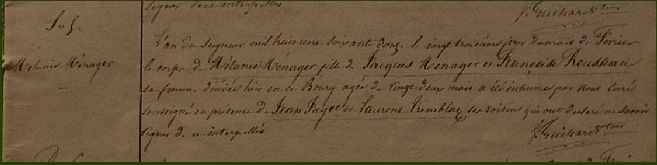 signer de ce interpellés
J Guichard
Sep.
L'an du Seigneur mil huit cens soixante douz. le vingt troisième jour du mois de Fevrier
Melanie Ménager
le corps de Mélanie Menager fille de Jacques Menager et Françoise Rousseau
sa femme, décédée hier en ce Bourg agée de vingt deux mois a été inhumé par nous Curé
soussigné en présence de Jean Jagu et Laurent Tremblaÿ ses voisins qui ont déclaré ne savoir
signer de ce interpellés
J Guichard